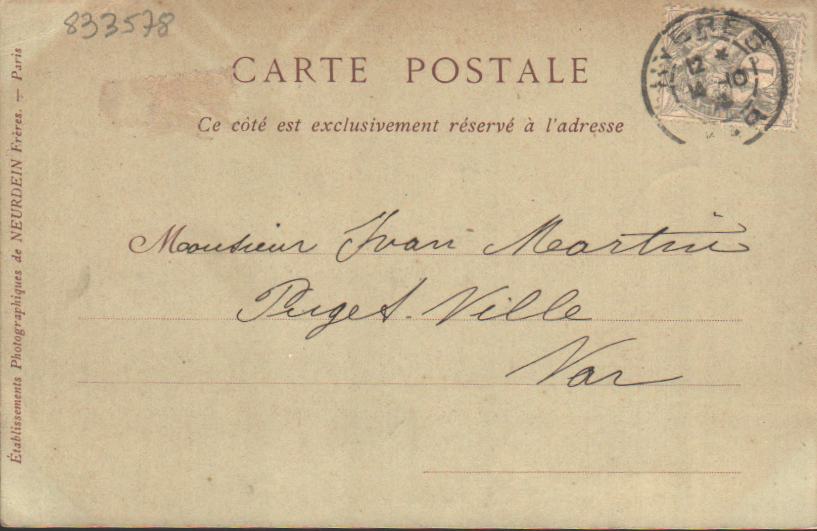 833578
CARTE POSTALE
Ce côté est exclusivement réservé à l'adresse
HYÈRES
Monsieur Ivan Martin
Puget-Ville
Var
Établissements Photographiques de NEURDEIN Frères. — Paris